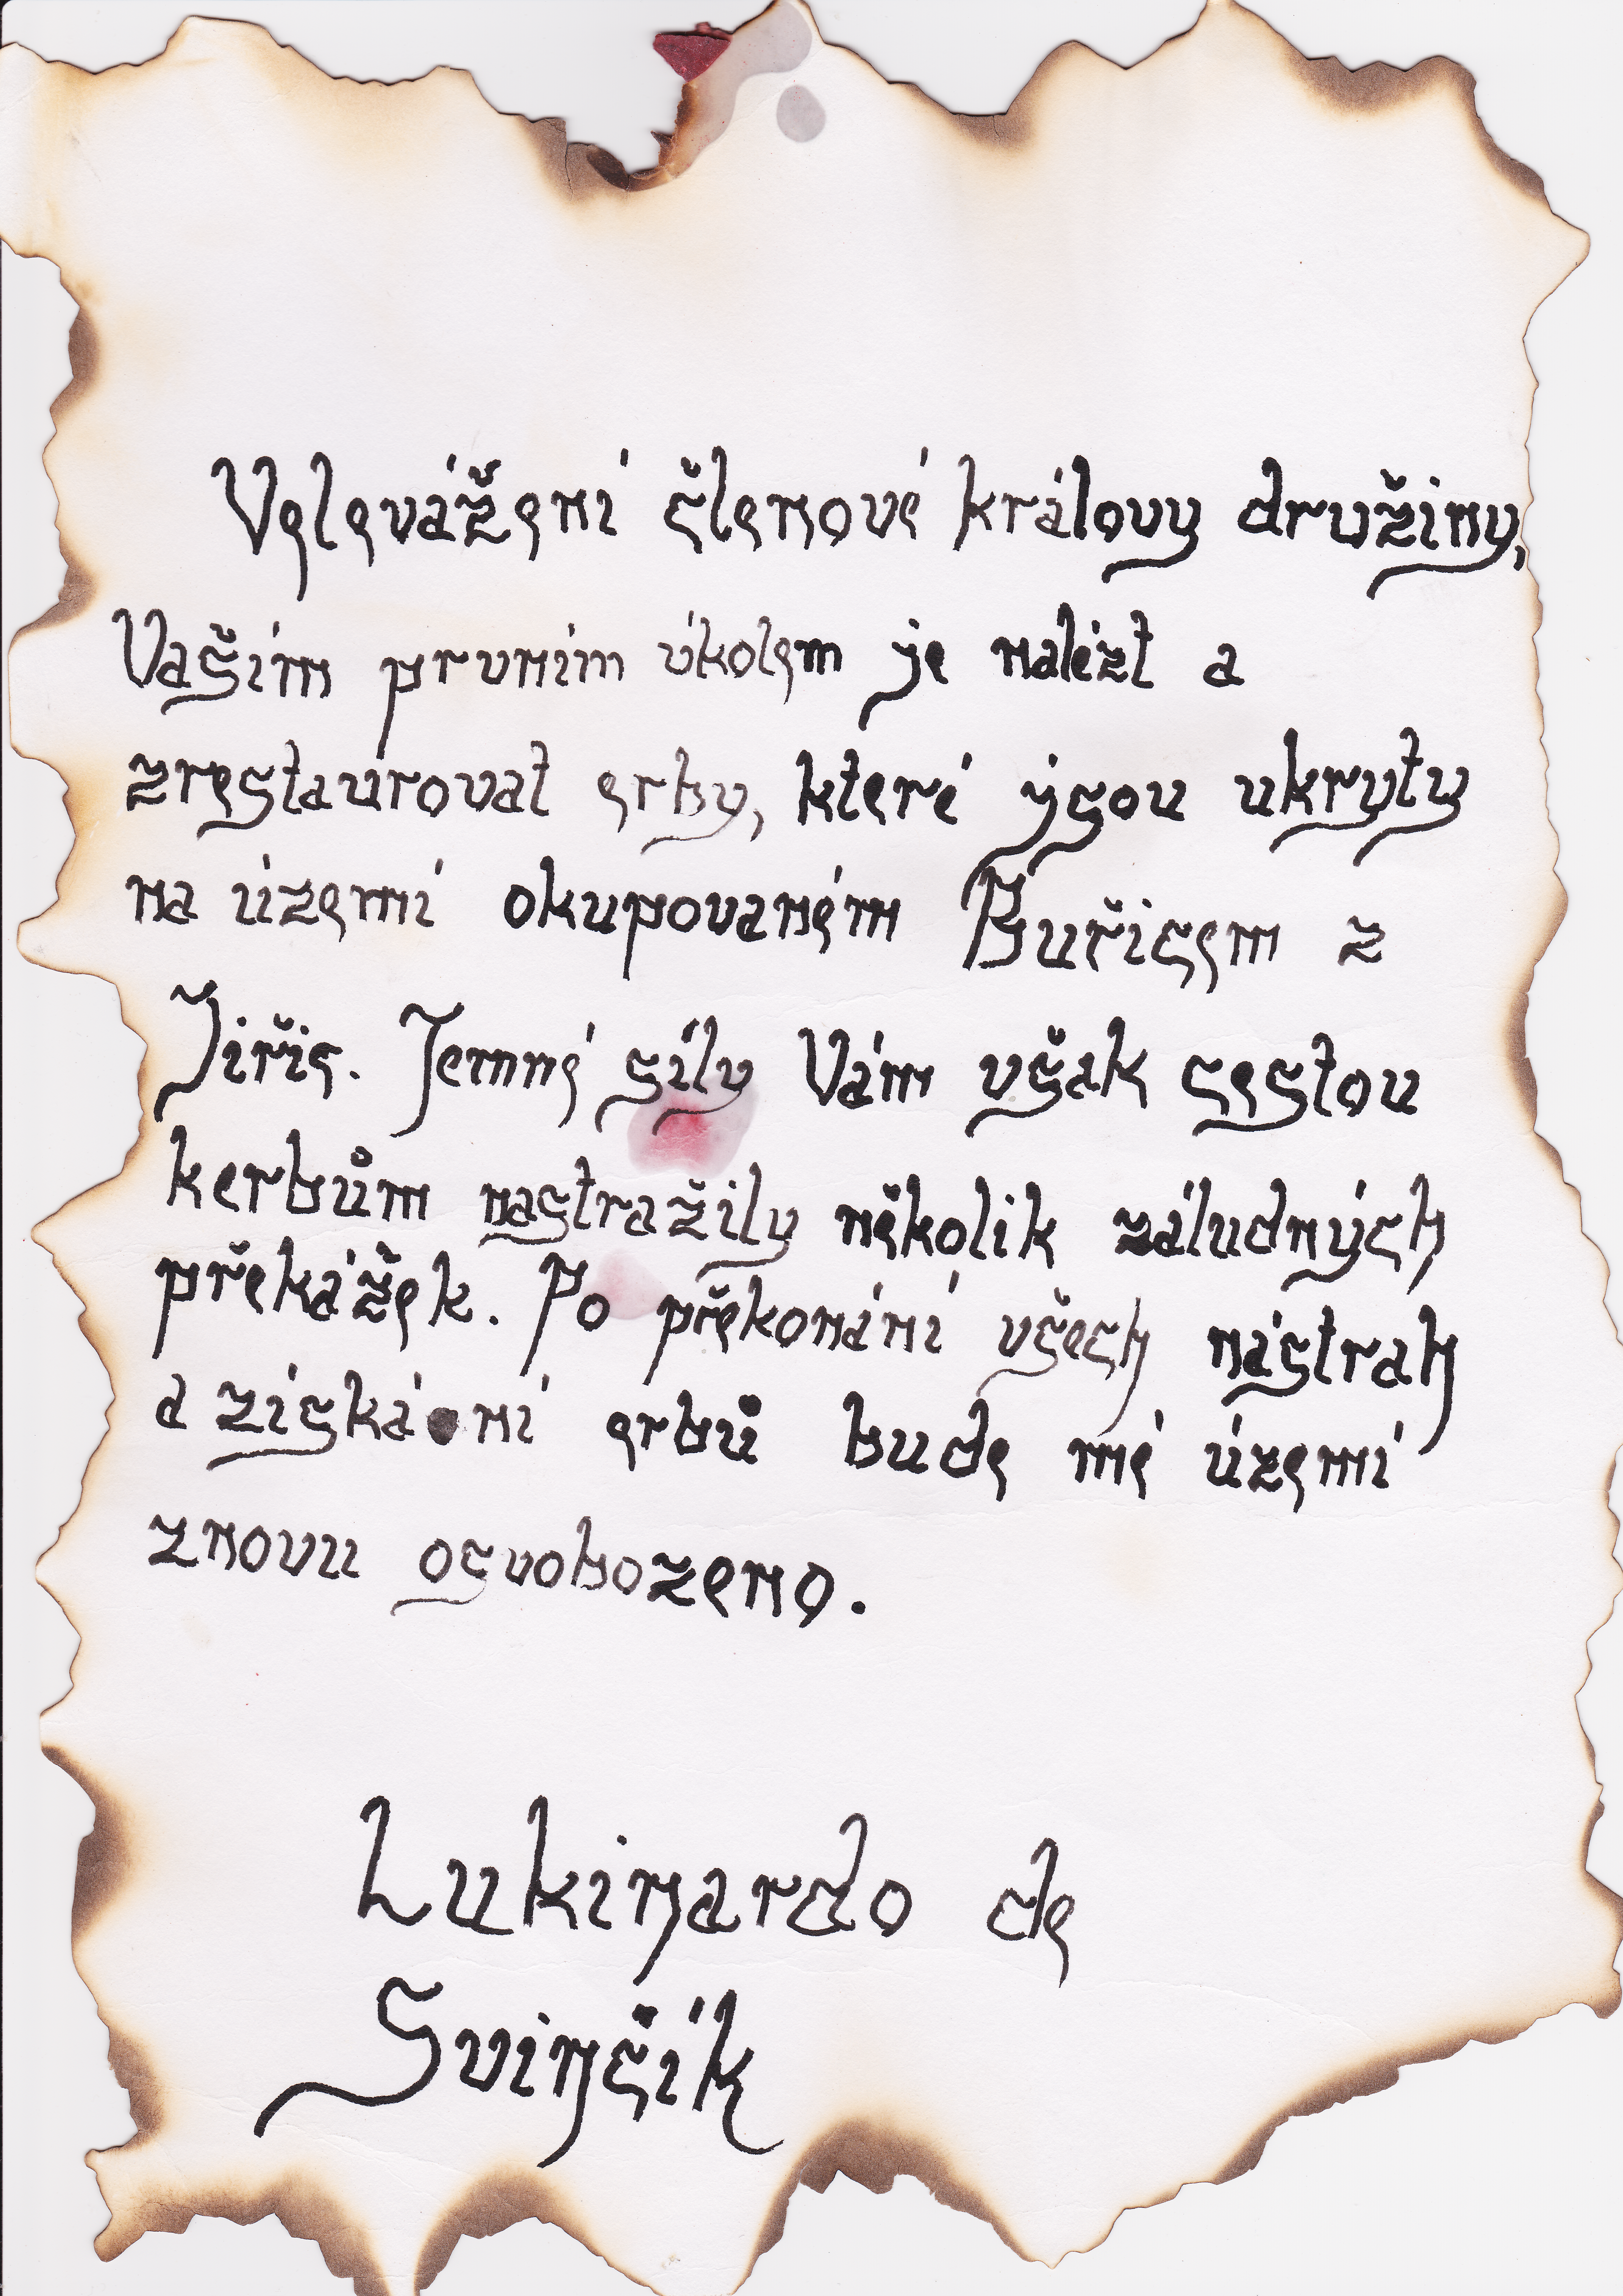 Velevážení členové královy družiny,
Vaším prvním úkolem je nalézt a
zrestaurovat erby, které jsou ukryty
na území okupovaném Buřicem z
Jiřic. Temné síly Vám však cestou
kerbům nastražily několik záludných
překážek. Po překonání všech nástrah
a získání erbů bude mé území
znovu osvobozeno.
Lukinardo de
Svinčík